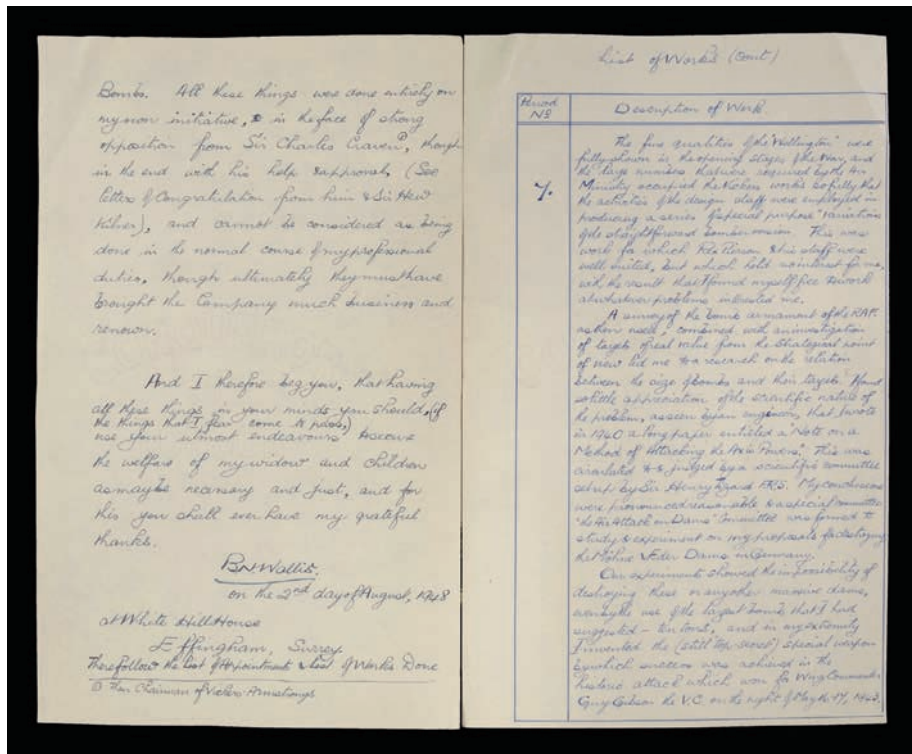 Bombs. All these things were done entirely on
my own initiative, & in the face of strong
opposition from Sir Charles Craven①, though
in the end with his help & approval, (See
letter of Congratulation from him & Sir Hew
Kilner), and cannot be considered as being
done in the normal course of my professional
duties, though ultimately they must have
brought the Company much business and
renown.
And I therefore beg you, that having
all these things in your minds you should, (if
the things that I fear come to pass,)
use your utmost endeavours to secure
the welfare of my widow and children
as may be necessary and just, and for
this you shall ever have my grateful
thanks.
BNWallis.
on the 2nd day of August, 1948
at White Hill House
Effingham, Surrey.
There follow the List of Appointments & List of Works Done
① Then Chairman of Vickers Armstrongs
List of Works (Cont)
Period
No
Description of Work.
7.
The fine qualities of the "Wellington" were
fully shown in the opening stages of the War, and
the large numbers that were required by the Air
Ministry occupied the Vickers works so fully that
the activities of the design staff were employed in
producing a series of special purpose "variations"
of the straightforward bomber version. This was
work for which Rex Pierson & his staff were
well suited, but which held no interest for me,
with the result that I found myself free to work
at whatever problems interested me.
A survey of the bomb armament of the RAF.
as then used, combined with an investigation
of targets of real value from the Strategical point
of view led me to a research on the relation
between the size of bombs and their targets. I found
so little appreciation of the scientific nature of
the problem, as seen by an engineer, that I wrote
in 1940 a long paper entitled a "Note on a
Method of Attacking the Axis Powers." This was
circulated to & judged by a scientific committee
set up by Sir Henry Tizard F.R.S. My conclusions
were pronounced reasonable & a special committee
"the Air Attack on Dams" Committee was formed to
study & experiment on my proposals for destroying
the Möhne & Eder Dams in Germany.
Our experiments showed the impossibility of
destroying these or any other massive dams,
even by the use of the largest bomb that I had
suggested – ten tons, and in my extremity
I invented the (still top secret) special weapon
by which success was achieved in the
historic attack which won for Wing Commander
Guy Gibson the V.C. on the night of May 16/17, 1943.